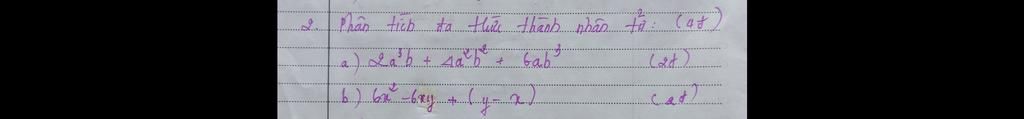 2. Phân tích đa thức thành nhân tử: (2đ)
a) 2a³b + 4a²b² + 6ab³ (2đ)
b) 6x² - 6xy + (y - x) (2đ)